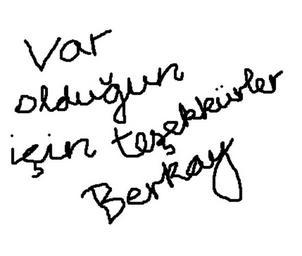 Var
olduğun
için teşekkürler
Berkay